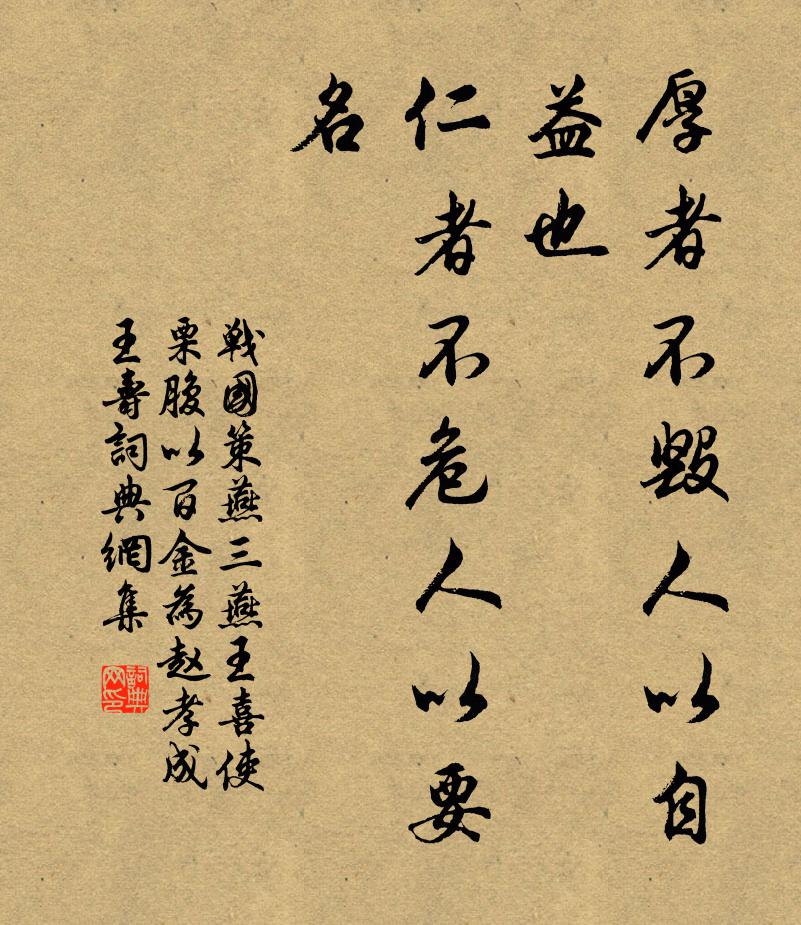 厚者不毀人以自
益也
仁者不危人以要
名
戰國策燕三燕王喜使
栗腹以百金為赵孝成
王壽詞典網集
詞典
网印